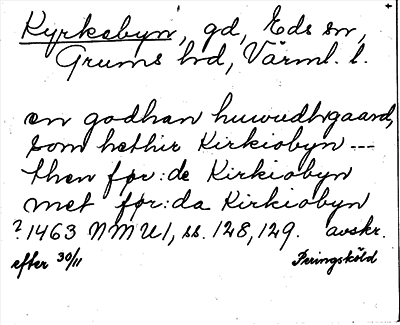 Kyrkebyn, gd, Eds sn,
Grums hd, Värml. l.
en godhan huwudhgaard,
som hethir Kirkiobyn ---
then før:de Kirkiobyn
met før:da Kirkiobyn
? 1463 NMU1, ss. 128, 129. avskr.
efter 30/11 Peringsköld